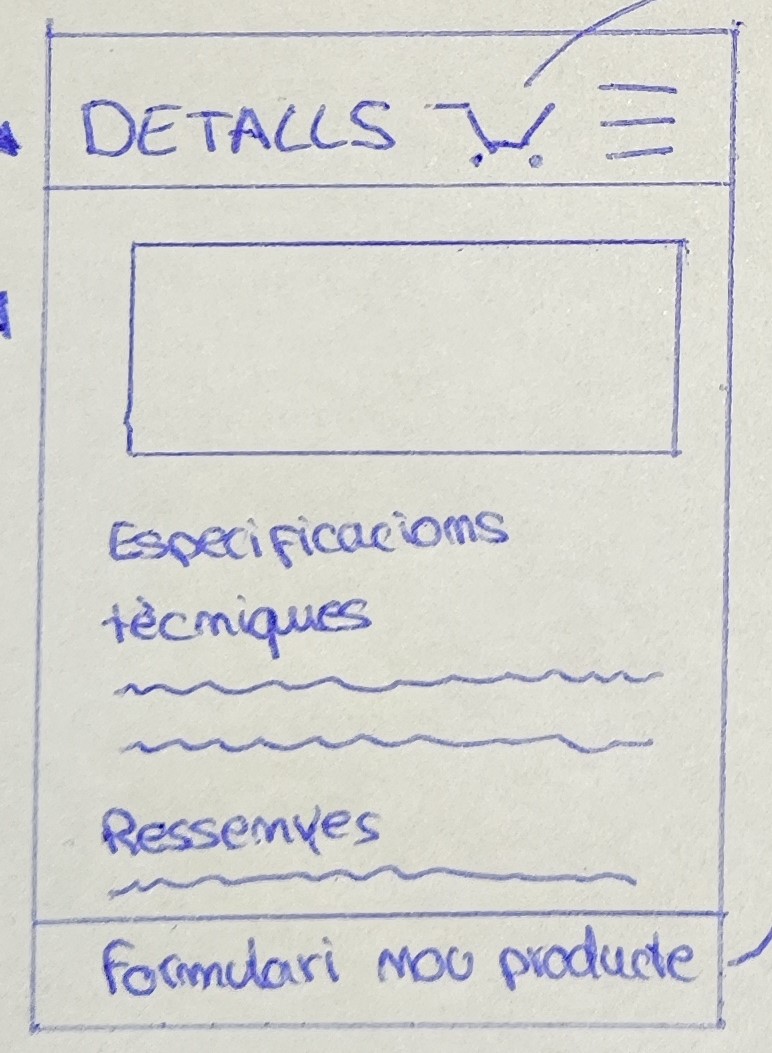 DETALLS
Especificacions
tècniques
Ressenyes
Formulari nou producte